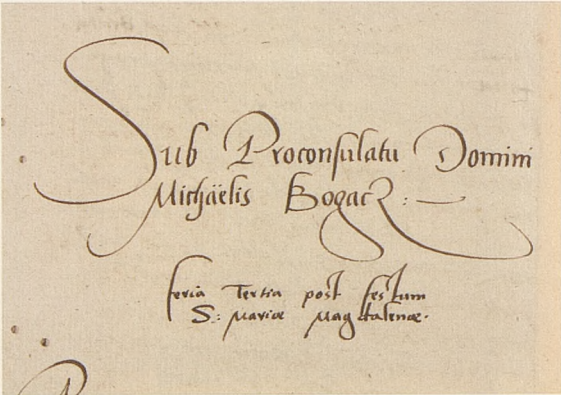 Sub Proconsulatu Domini
Michäelis Bogacz :
feria Tertia post festum
S: Mariæ Magdalenæ.